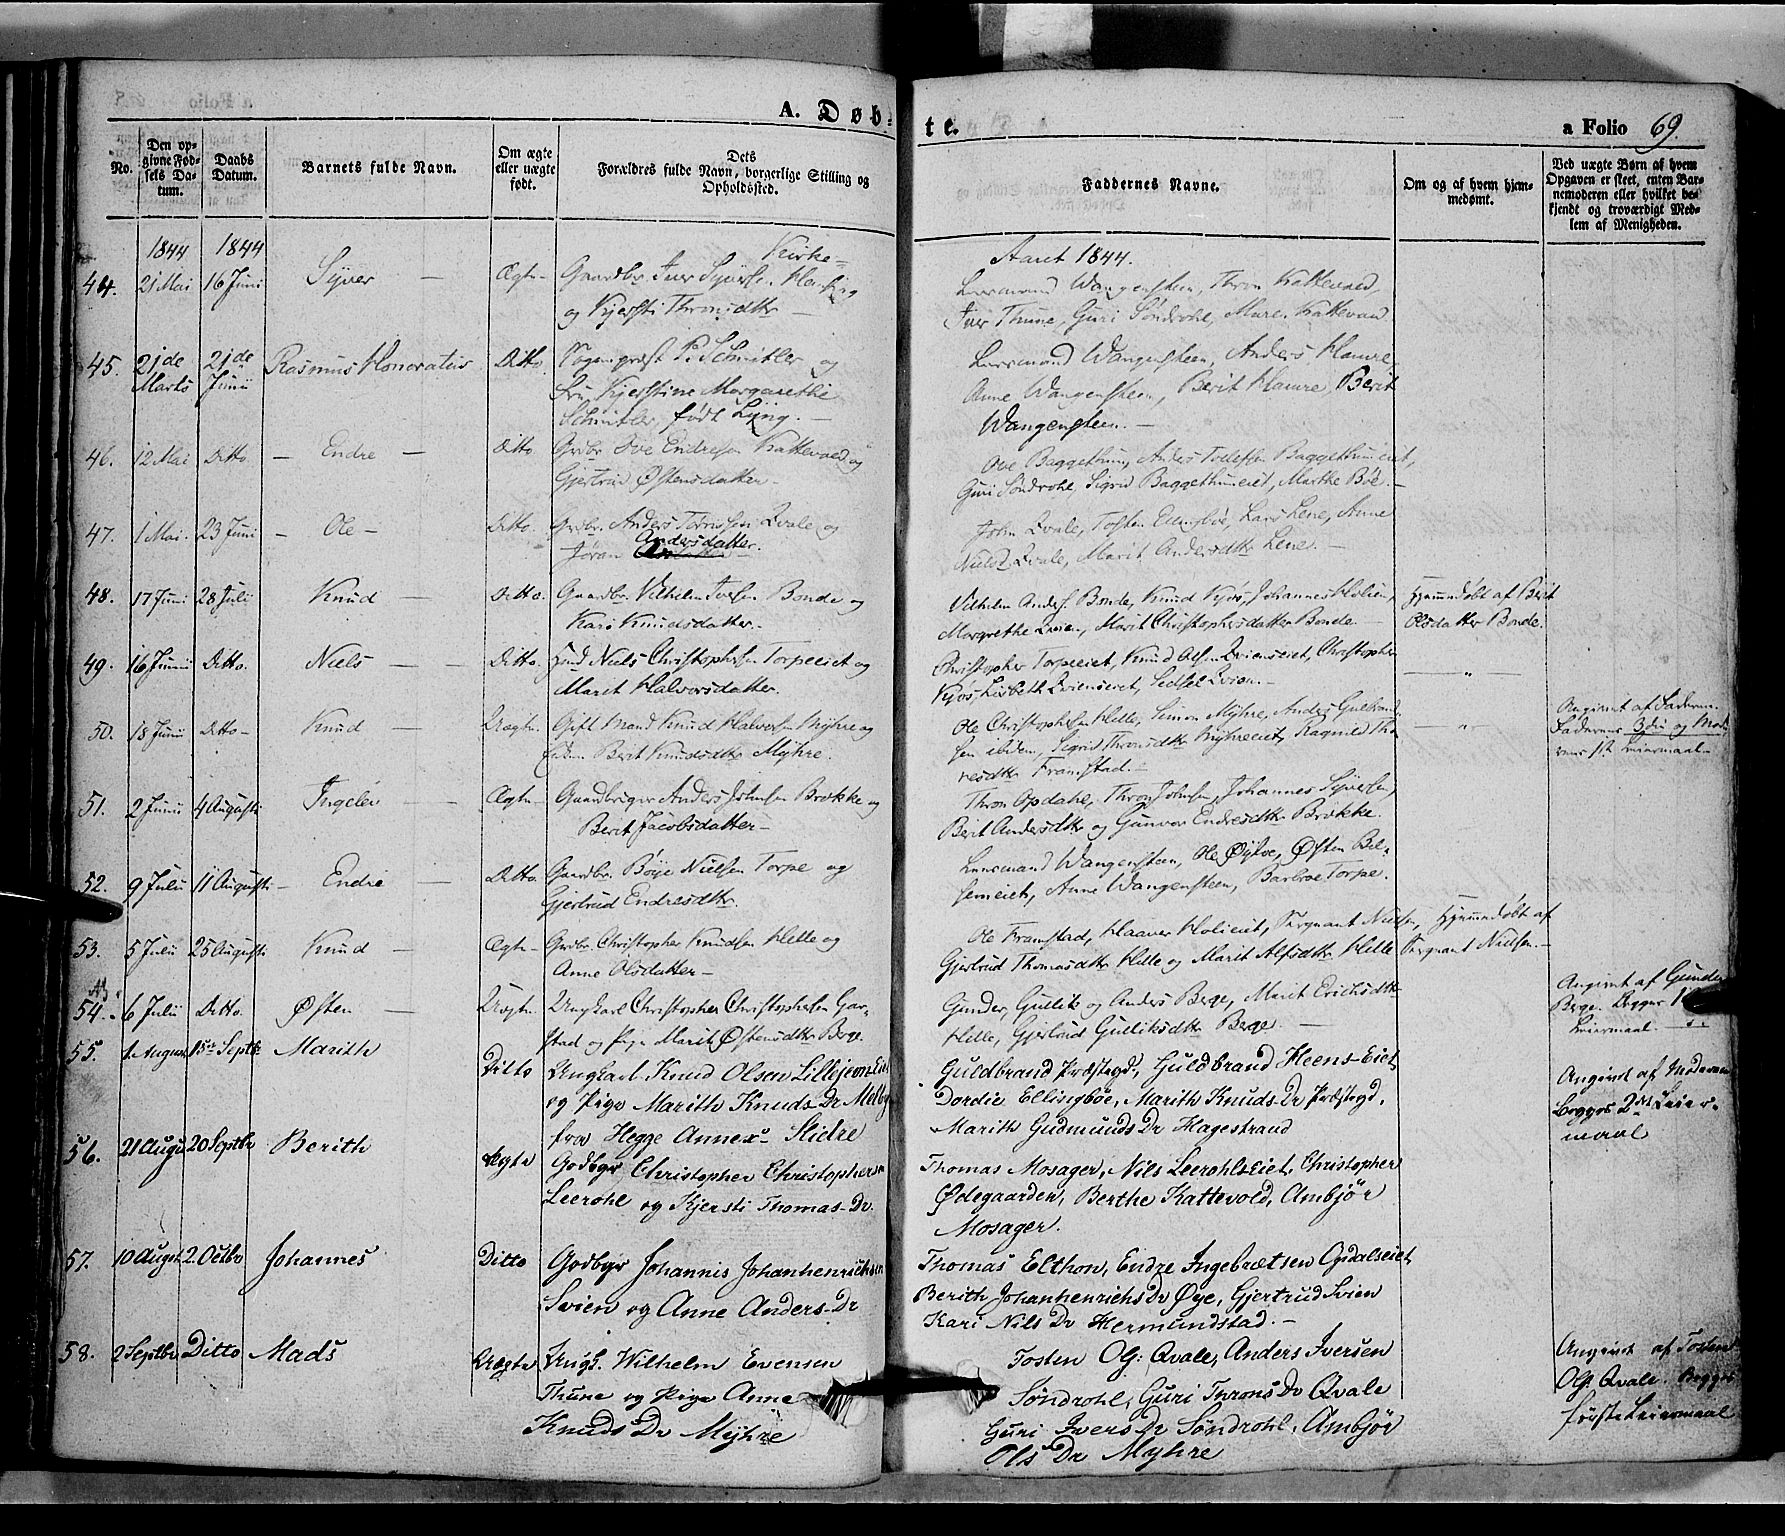 A. Døbte.
a Folio 69.
No.
Den opgivne Fødsels Datum.
Daabs Datum.
Barnets fulde Navn.
Om ægte eller uægte født.
Dets Forældres fulde Navn, borgerlige Stilling og Opholdssted.
Faddernes Navne.
Om og af hvem hjemmedømt.
Ved uægte Børn af hvem Opgaven er skeet, enten Barnemoderen eller hvilket bekjendt og troværdigt Medlem af Menigheden.
1844 1844 Aaret 1844.
44. 21 Mai 16 Juni Syver Ægte Gaardbr. Iver Syvers. Kirke-
og Kjersti Thronsdtr
Lensmand Wangensteen, Thron Kattevold,
Iver Thune, Guri Söndrohl, Maren Kattevold
45. 21de Marts 21de Junii Rasmus Honoratus Ditto Sogneprest P. Schnitler og
Fru Kjerstine Margarethe
Schnitler, født Lyng.
Lensmand Wangensteen, Anders Haure,
Anne Wangensteen, Berit Haure, Berit
Wangensteen.
46. 12 Mai Ditto Endre Ditto Grdbr. Ove Endresen Kattevold og
Gjertrud Østensdatter
Ove Baggethun, Anders Tollefsen Baggethuneiet,
Guri Söndrohl, Sigrid Baggethuneiet, Marthe Böe.
47. 1 Mai. 23 Juni Ole Ditto. Grdbr. Anders Qvale og
Joran Andersdatter.
John Qvale, Tosten Ellingböe, Lars Lene, Anne
Qvale, Marit Andersdtr Lene.
48. 17 Juni 28 Juli Knud Ditto. Gaardbr. Vilhelm Iversen Bonde og
Kari Knudsdatter.
Vilhelm Anders. Bonde, Knud Kjös, Johannes Holien,
Margrethe Qvien, Marit Christophersdatter Bonde.
Hjemmedöbt af Berit
Olsdatter Bonde.
49. 16 Junii Ditto. Niels Ditto. Hmd Niels Christophersen Torpeeiet og
Marit Halvorsdatter.
Christopher Torpeeiet, Knud Olsen Qvienseiet, Christopher
Kjös, Lisbeth Qvienseiet, Sidsel Qvien.
50. 18 Junii Ditto Knud Uægte Gift Mand Knud Halvorsen Myhre og
Berit Knudsdatter Myhre.
Ole Christophersen Helle, Simon Myhre, Anders Gulbrand-
sen ibidem, Sigrid Thronsdtr Myhreeiet, Ragnild Tho-
resdtr Framstad.
Angivet af Faderen.
Faderens 3die og Mode-
rens 1ste Leiermaal.
51. 2 Junii 4 Augusti Ingelev Ægte Gaardbruger Anders Johnsen Brække og
Berit Jacobsdatter
Thron Opdahl, Thron Johnsen, Johannes Syversen,
Berit Andersdtr og Gunvor Endresdtr Brække.
52. 9 Julii 11 Augusti Endre Ditto. Gaardbr. Böye Nielsen Torpe og
Gjertrud Endresdtr.
Lensmand Wangensteen, Ole Öyloe, Østen Bel-
semeiet, Anne Wangensteen, Barbroe Torpe.
53. 5 Julii 25 Augusti Knud Ægte Grdbr. Christopher Knudsen Helle og
Anne Olsdatter
Ole Framstad, Haaver Holieiet, Sergeant Nielsen,
Gjertrud Thomasdtr Helle og Marit Alfsdtr Helle
Hjemmedöbt af
Sergeant Nielsen.
54. 6 Julii Ditto. Østen Uægte Ungkarl Christopher Christophersen Gar-
stad og Pige Marit Østensdtr Berge.
Gunder, Gullik og Anders Berge, Marit Ericksdtr
Helle, Gjertrud Gulliksdtr Berge
Angivet af Gunder
Berge. Begges 1ste
Leiermaal.
55. 1 August 15de Septbr Marith Ditto Ungkarl Knud Olsen Lillejeonseiet
og Pige Marith Knuds Dr Melby
fra Hegge Annex Slidre
Guldbrand Præstegd, Guldbrand Heens-Eiet
Dordie Ellingbøe, Marith Knuds Dr Præstegd,
Marith Gudmunds Dr Hagestrand
Angivet af Moderen
Begges 2det Leier-
maal
56. 21 Augu 20 Septbr Berith Ægte Godbgr Christopher Christophersen
Leerohl og Kjersti Thomas-Dr.
Thomas Mosager, Nils Leerohlseiet, Christopher
Ødegaarden, Berthe Kattevold, Ambjør
Mosager.
57. 10 August 2. Octbr Johannes Ditto Godbgr Johannis Johanhenrichsen
Svien og Anne Anders-Dr
Thomas Elthon, Endre Ingebrætsen Opdalseiet,
Berith Johanhenrichs Dr Øye, Gjertrud Svien
Kari Nils Dr Hermundstad.
58. 2 Septbr Ditto Mads Uægte Ungk. Wilhelm Evensen
Thune og Pige Anne
Knuds Dr Myhre
Tosten Ols. Qvale, Anders Iversen
Søndrohl, Guri Throns Dr Qvale
Guri Ivers Dr Søndrohl, Ambjør
Ols Dr Myhre
Angivet af Tosten
Ols. Qvale. Begges
første Leiermaal